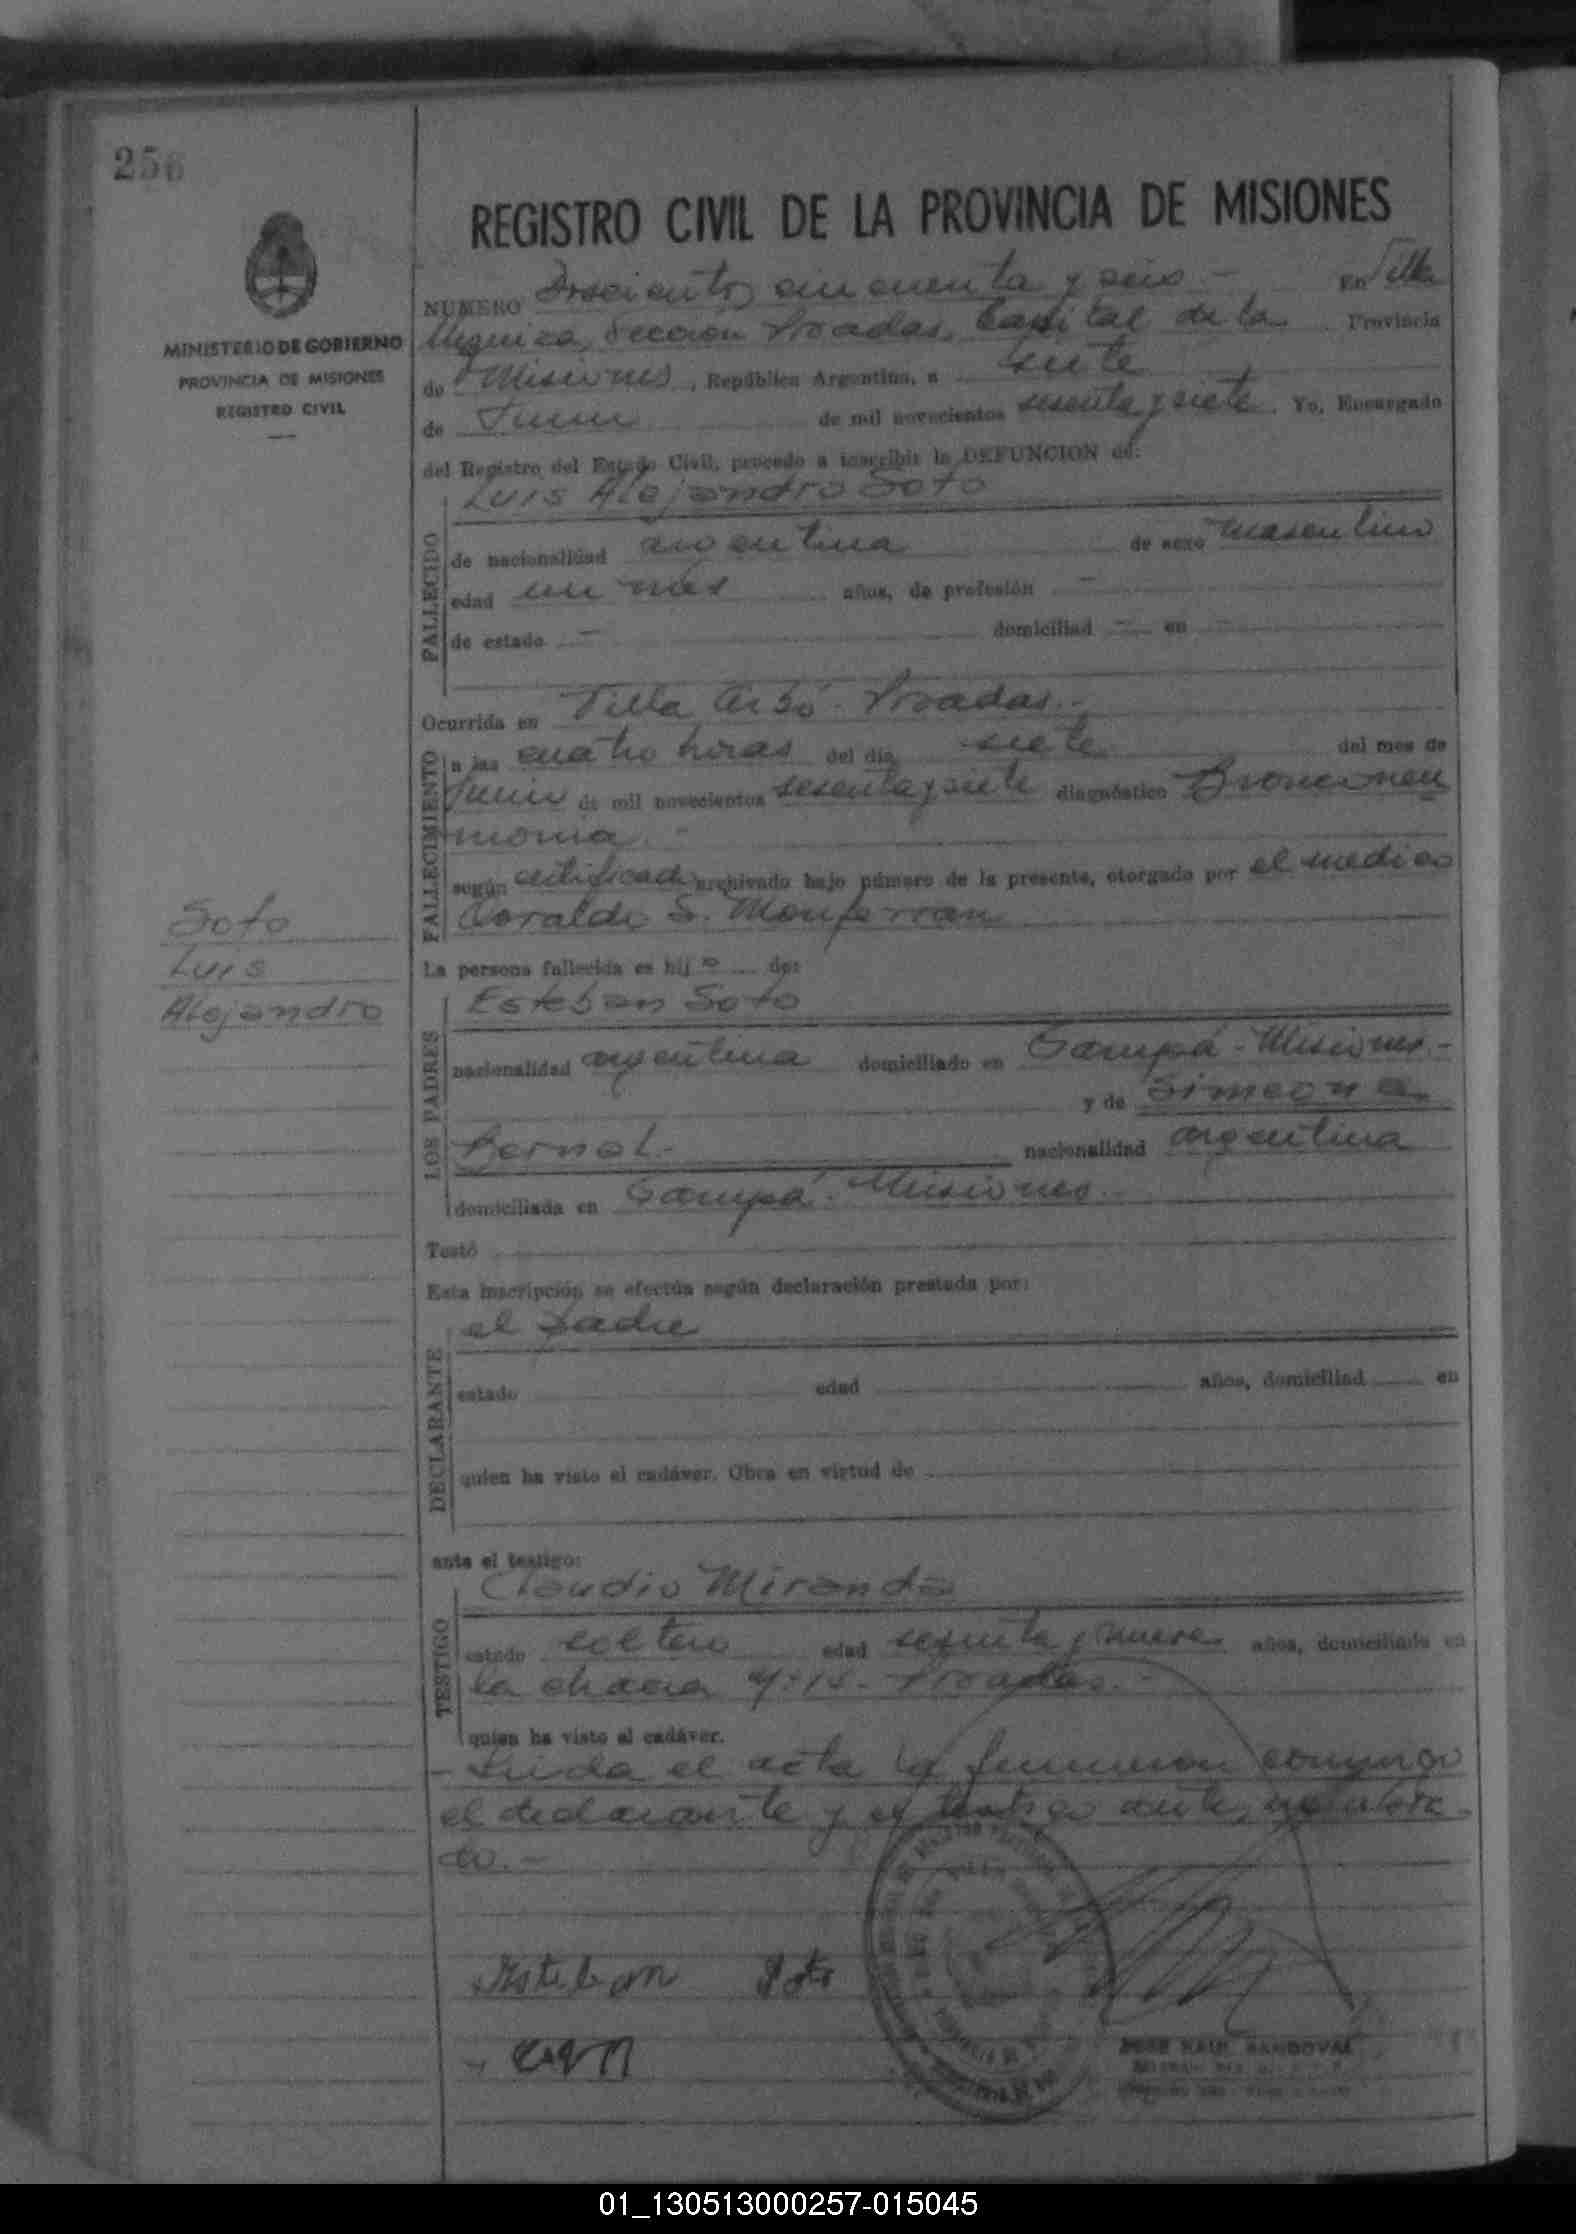 256
MINISTERIO DE GOBIERNO
PROVINCIA DE MISIONES
REGISTRO CIVIL
REGISTRO CIVIL DE LA PROVINCIA DE MISIONES
NUMERO Doscientos cincuenta y seis.- En Villa
Urquiza, Sección Posadas, Capital de la Provincia
de Misiones, República Argentina, a siete
de Junio de mil novecientos sesenta y siete. Yo, Encargado
del Registro del Estado Civil, procedo a inscribir la DEFUNCION de:
Luis Alejandro Soto
FALLECIDO
de nacionalidad argentina de sexo masculino
edad un mes años, de profesión -
de estado - domiciliad - en -
Ocurrida en Villa Cabó - Posadas.-
FALLECIMIENTO
a las cuatro horas del día siete del mes de
Junio de mil novecientos sesenta y siete diagnóstico Bronconeu
monia.-
según certificado archivado bajo número de la presente, otorgado por el medico
Osvaldo S. Monferran
Soto
Luis
Alejandro
La persona fallecida es hij o de:
LOS PADRES
Esteban Soto
nacionalidad argentina domiciliado en Garupá - Misiones.-
y de Simeona
Bernal.- nacionalidad argentina
domiciliada en Garupá - Misiones.-
Testó
Esta inscripción se efectúa según declaración prestada por:
DECLARANTE
el padre
estado edad años, domiciliad en
quien ha visto el cadáver. Obra en virtud de
ante el testigo:
TESTIGO
Claudio Miranda
estado soltero edad sesenta y nueve años, domiciliado en
la chacra Posadas.-
quien ha visto el cadáver.
- Leida el acta la firmaron conmigo
el declarante y el testigo ante
do.-
Esteban Soto
JOSE RAUL SANDOVAL
01_130513000257-015045